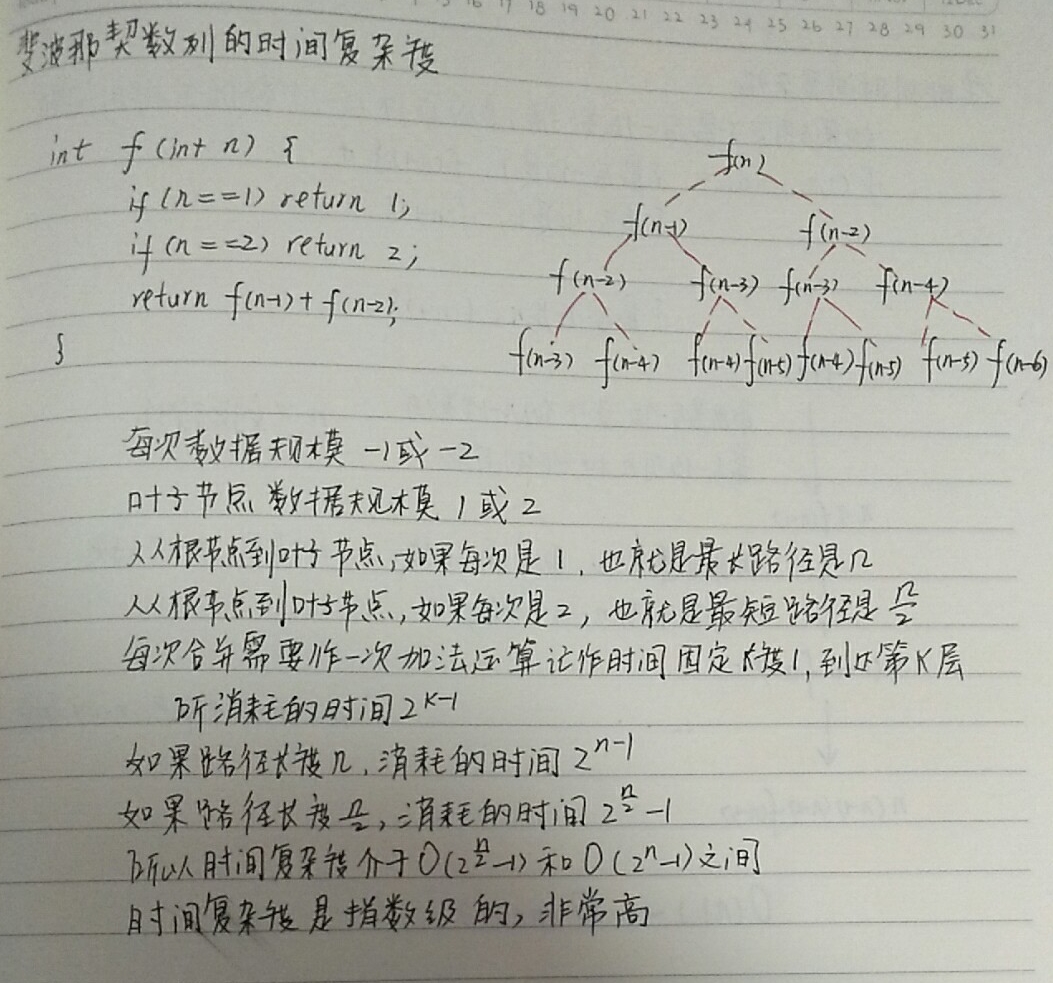 16 17 18 19 20 21 22 23 24 25 26 27 28 29 30 31
斐波那契数列的时间复杂度
int f(int n) {
if (n==1) return 1;
if (n==2) return 2;
return f(n-1)+f(n-2);
}
f(n)
f(n-1) f(n-2)
f(n-2) f(n-3) f(n-3) f(n-4)
f(n-3) f(n-4) f(n-4) f(n-5) f(n-4) f(n-5) f(n-5) f(n-6)
每次数据规模 -1或 -2
叶子节点 数据规模 1 或 2
从根节点到叶子节点,如果每次是 1, 也就是最长路径是n
从根节点到叶子节点,如果每次是2, 也就是最短路径是 n/2
每次合并需要作一次加法运算记作时间固定长度1,到达第K层
所消耗的时间 2^{K-1}
如果路径长度n,消耗的时间 2^{n-1}
如果路径长度 n/2,消耗的时间 2^{n/2}-1
所以时间复杂度介于O(2^{n/2}-1)和O(2^n-1)之间
时间复杂度是指数级的,非常高